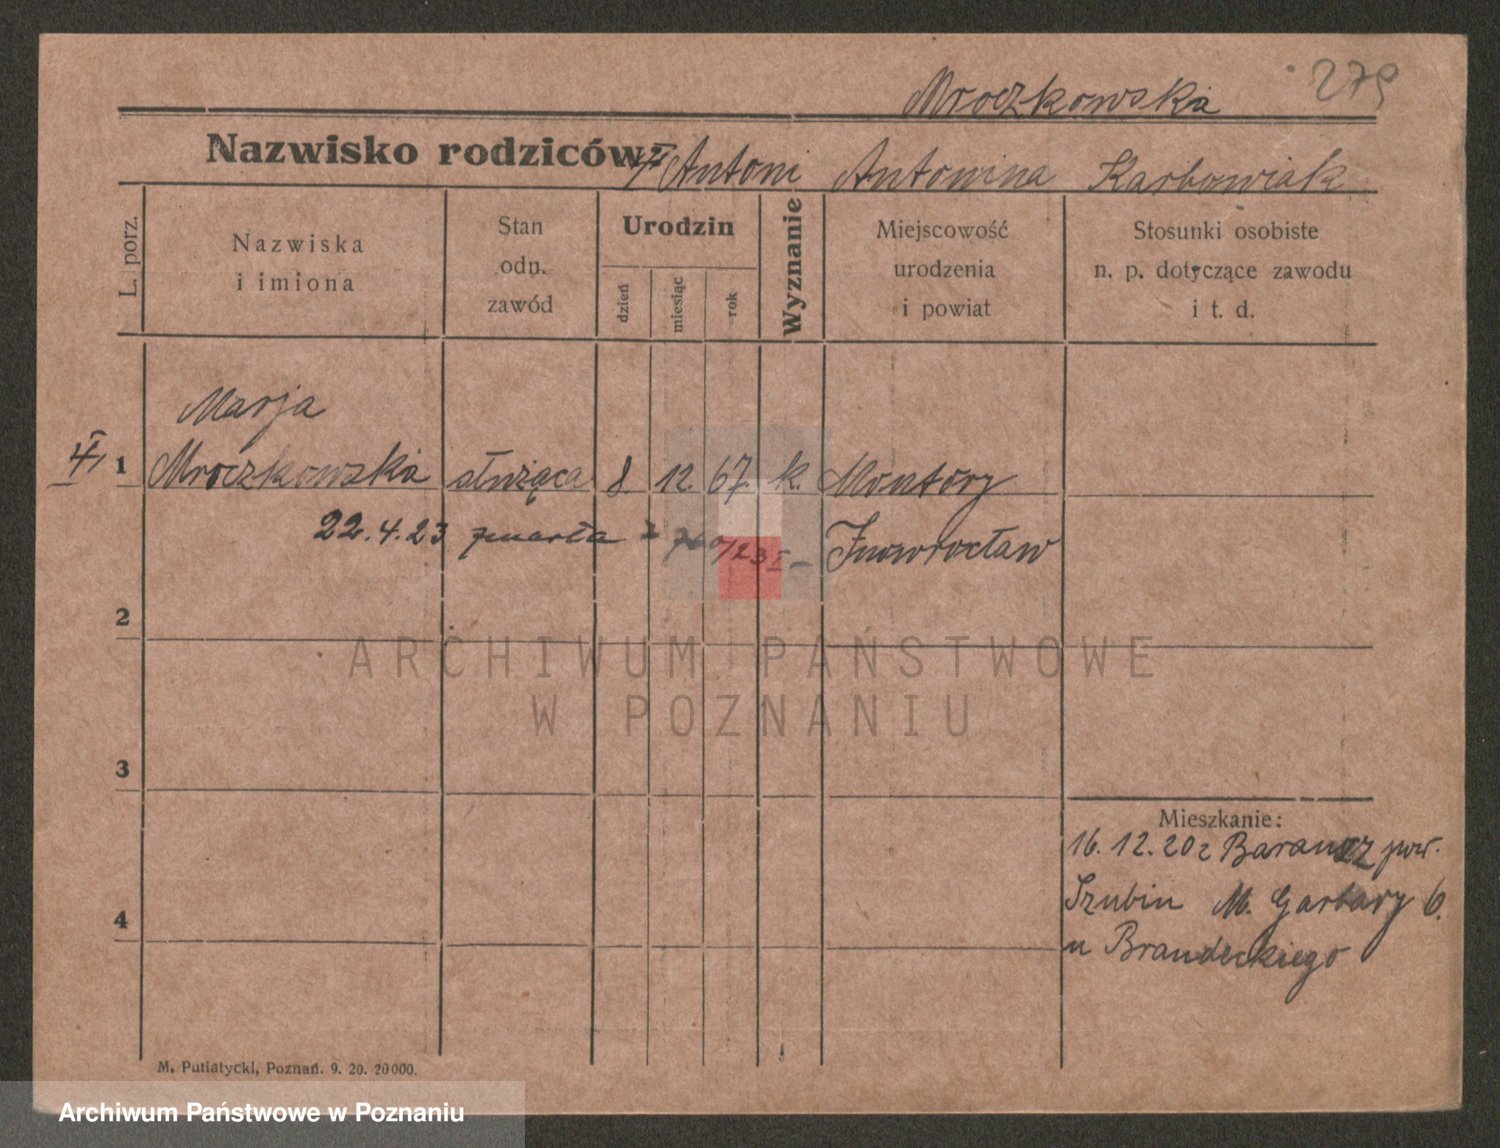 279
Mroczkowska
Nazwisko rodziców: Antoni Antonina Karbowiak
L. porz.
Nazwiska
i imiona
Stan
odn.
zawód
Urodzin
dzień
miesiąc
rok
Wyznanie
Miejscowość
urodzenia
i powiat
Stosunki osobiste
n. p. dotyczące zawodu
i t. d.
Marja
1 Mroczkowska służąca 8. 12. 67. k. Montory
22.4.23 zmarła Inowrocław
2
ARCHIWUM PAŃSTWOWE
W POZNANIU
3
Mieszkanie:
16.12.20 z pow.
4 Szubin M. Garbary 6.
u Brandeckiego
M. Putiatycki, Poznań. 9. 20. 20000.
Archiwum Państwowe w Poznaniu